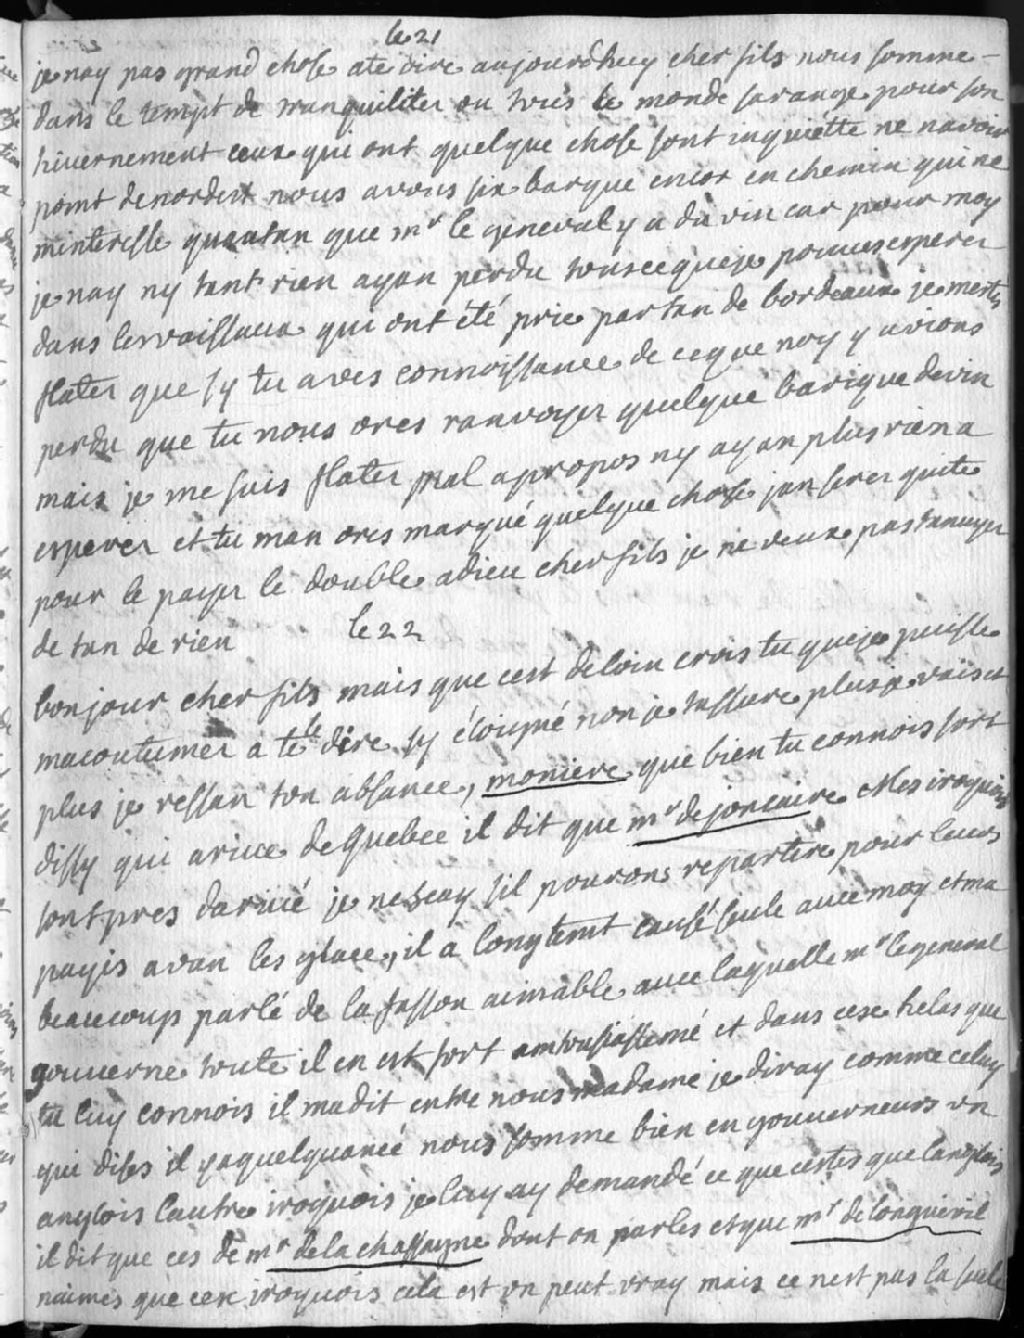 le 21
je nay pas grand chose ate dire aujourdhuy cher fils nous somme
dans le tempt de tranquilliter ou tous le monde sarange pour son
hivernement ceux qui ont quelque chose sont inquiette ne navoir
point de nordest nous avons six barque encor en chemin qui ne
minteresse quautan que mr le general y a du vin car pour moy
je nay ny tant rien ayan perdu tous ce queje pouves esperer
dans les vaissaux qui ont été prie partan de bordeaux je mestes
flater que sy tu aves connoissance de ceque noy y avions
perdu que tu nous ores ranvoyer quelque barique devin
mais je me suis flater mal apropos ny ayan plus rien a
esperer et tu man ores marqué quelque chose jan serer quite
pour le payer le double adieu cher fils je ne veux pas tanuyer
de tan de rien
le 22
bonjour cher fils mais que cest deloin crois tu queje puisse
macoutumer a te le dire sy éloigné non je tassure plus je vais et
plus je ressan ton absance, moniere que bien tu connois sort
dissy qui arive de quebec il dit que mr de joncaire et les iroquois
sont pres darivé je ne scay sil pourons repartire pour leurs
payis avan les glace, il a longtemt causé seule avec moy et ma
beaucoup parlé de la fasson aimable avec laquelle mr le general
gouverne toute il en est fort antousiassemé et dans cexe helas que
tu luy connois il madit entre nous madame je diray comme celuy
qui dises il ya quelquaneé nous somme bien en gouverneurs un
anglois lautre iroquois je luy ay demandé ce que cestes que langlois
il dit que ces de mr de la chassagne dont on parles et que mr de longueuil
naimes que cex iroquois cela est un peut vray mais ce nest pas la seule